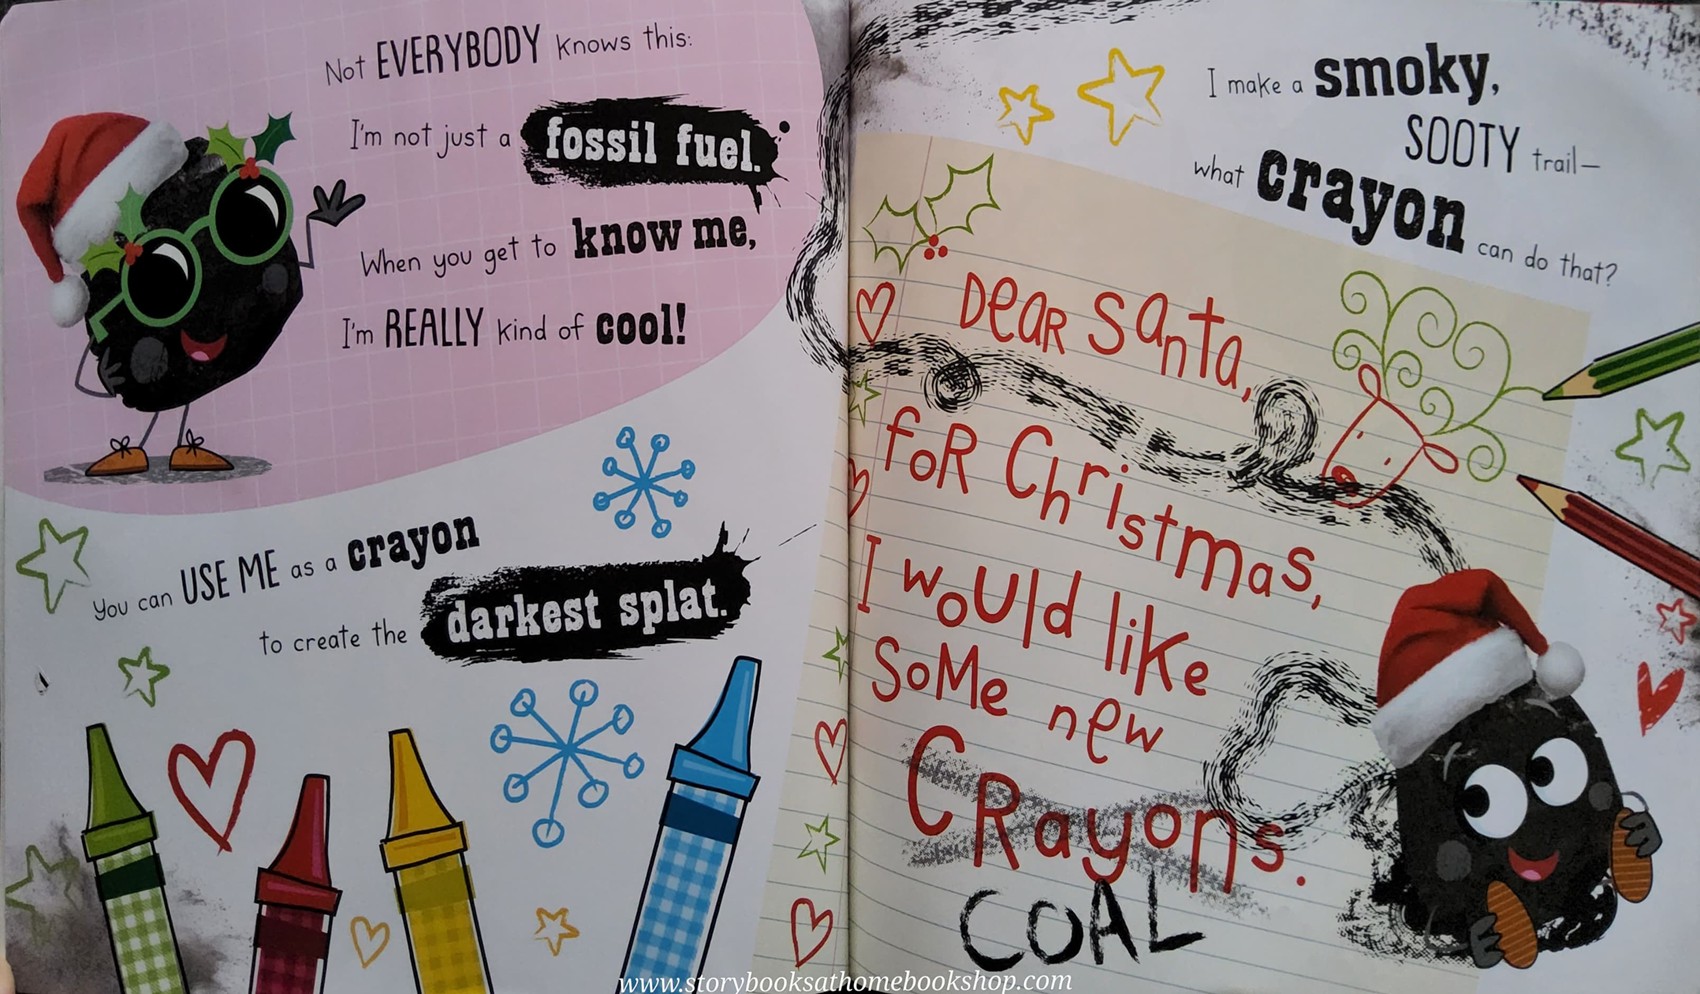 Not EVERYBODY knows this:
I'm not just a fossil fuel.
When you get to know me,
I'm REALLY kind of cool!
You can USE ME as a crayon
to create the darkest splat.
I make a smoky,
SOOTY trail—
what crayon can do that?
Dear Santa,
for Christmas,
I would like
some new
Crayons.
COAL
www.storybooksathomebookshop.com